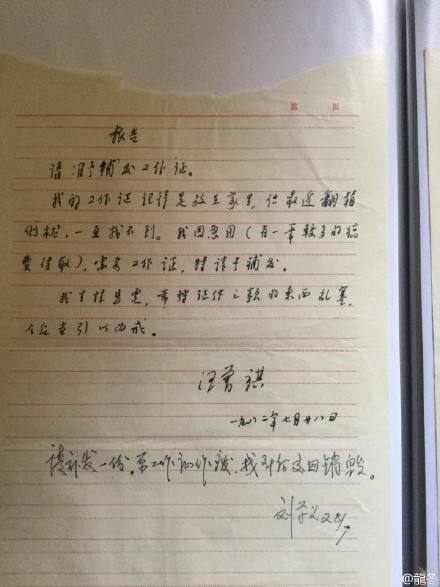 第 页
报告
请准予补发工作证。
我的工作证记得是放在家里,但最近翻箱
倒柜,一直找不到。我因急用(有一笔较多的稿
费待取),需要工作证,特请予补发。
我生性马虎,常将证件之类的东西乱塞,
今后当引以为戒。
汪曾祺
一九八二年七月廿八日
请补发一份。原工作证作废,找到后交回销毁。
刘
@龍